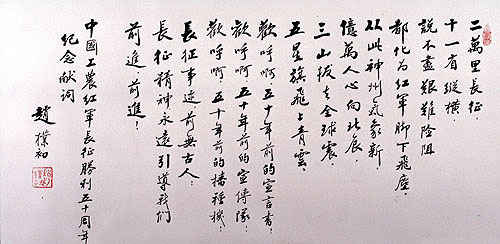 二萬里長征
十一省縱橫
說不盡艱難險阻
都化為紅軍腳下飛塵
從此神州氣象新
億萬人心向北辰
三山拔去全球震
五星旗飛上青雲
歡呼啊五十年前的宣言書
歡呼啊五十年前的宣傳隊
歡呼啊五十年前的播種機
長征事迹前無古人
長征精神永遠引導我們
前進前進！
中國工農紅軍長征勝利五十周年
紀念献词
趙樸初